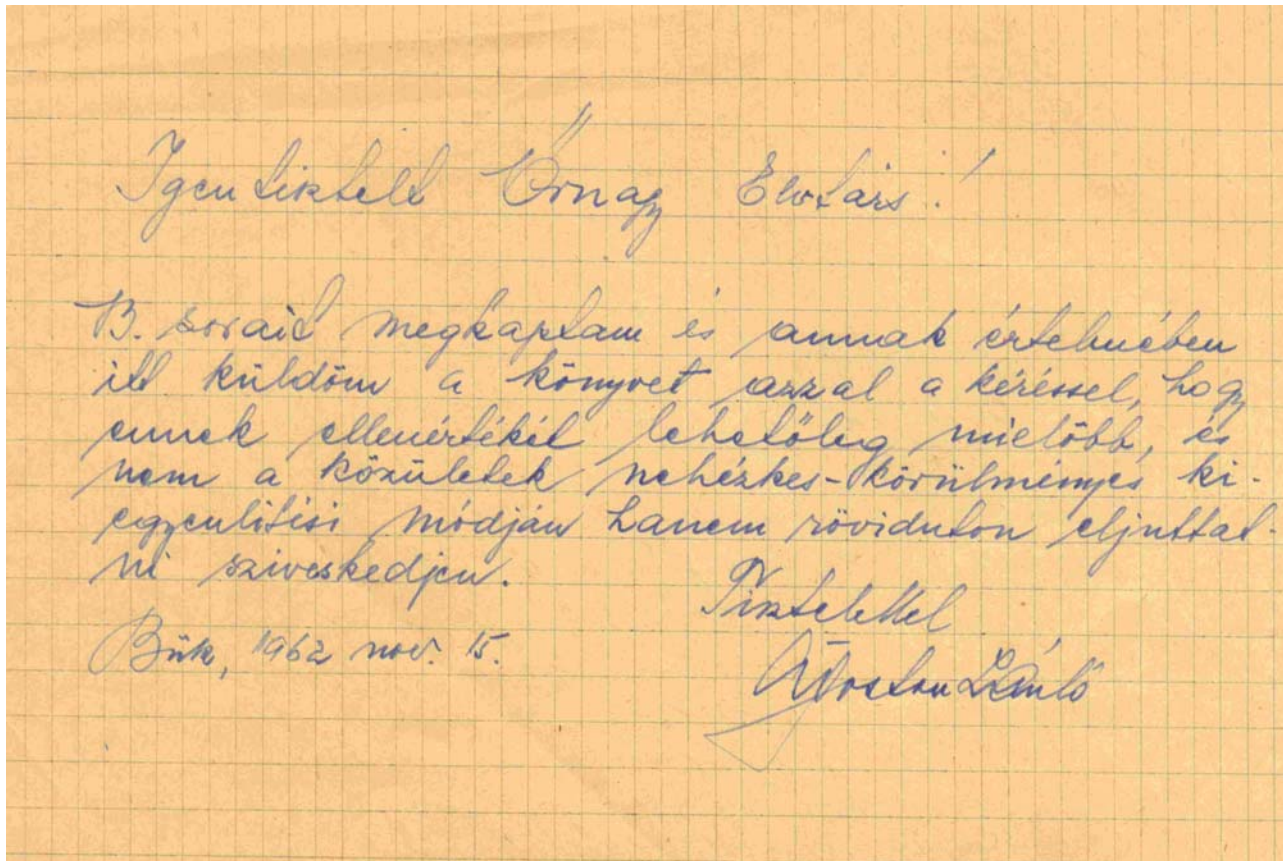 Igen tisztelt Őrnagy Elvtárs!
B. sorait megkaptam és annak értelmében
itt küldöm a könyvet azzal a kéréssel, hogy
ennek ellenértékét lehetőleg mielőbb, és
nem a közületek nehézkes-körülményes ki-
egyenlitési módján hanem röviduton eljuttat-
ni sziveskedjen.
Tisztelettel
Bük, 1962 nov. 15.
Ágoston László